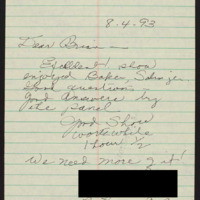 8-4-93
Dear Brian -
Excellent show
enjoyed Baker,
Good question -
Good Answers by
the panel
Good Show
worthwhile
1 hour 1/2
We need more of it!